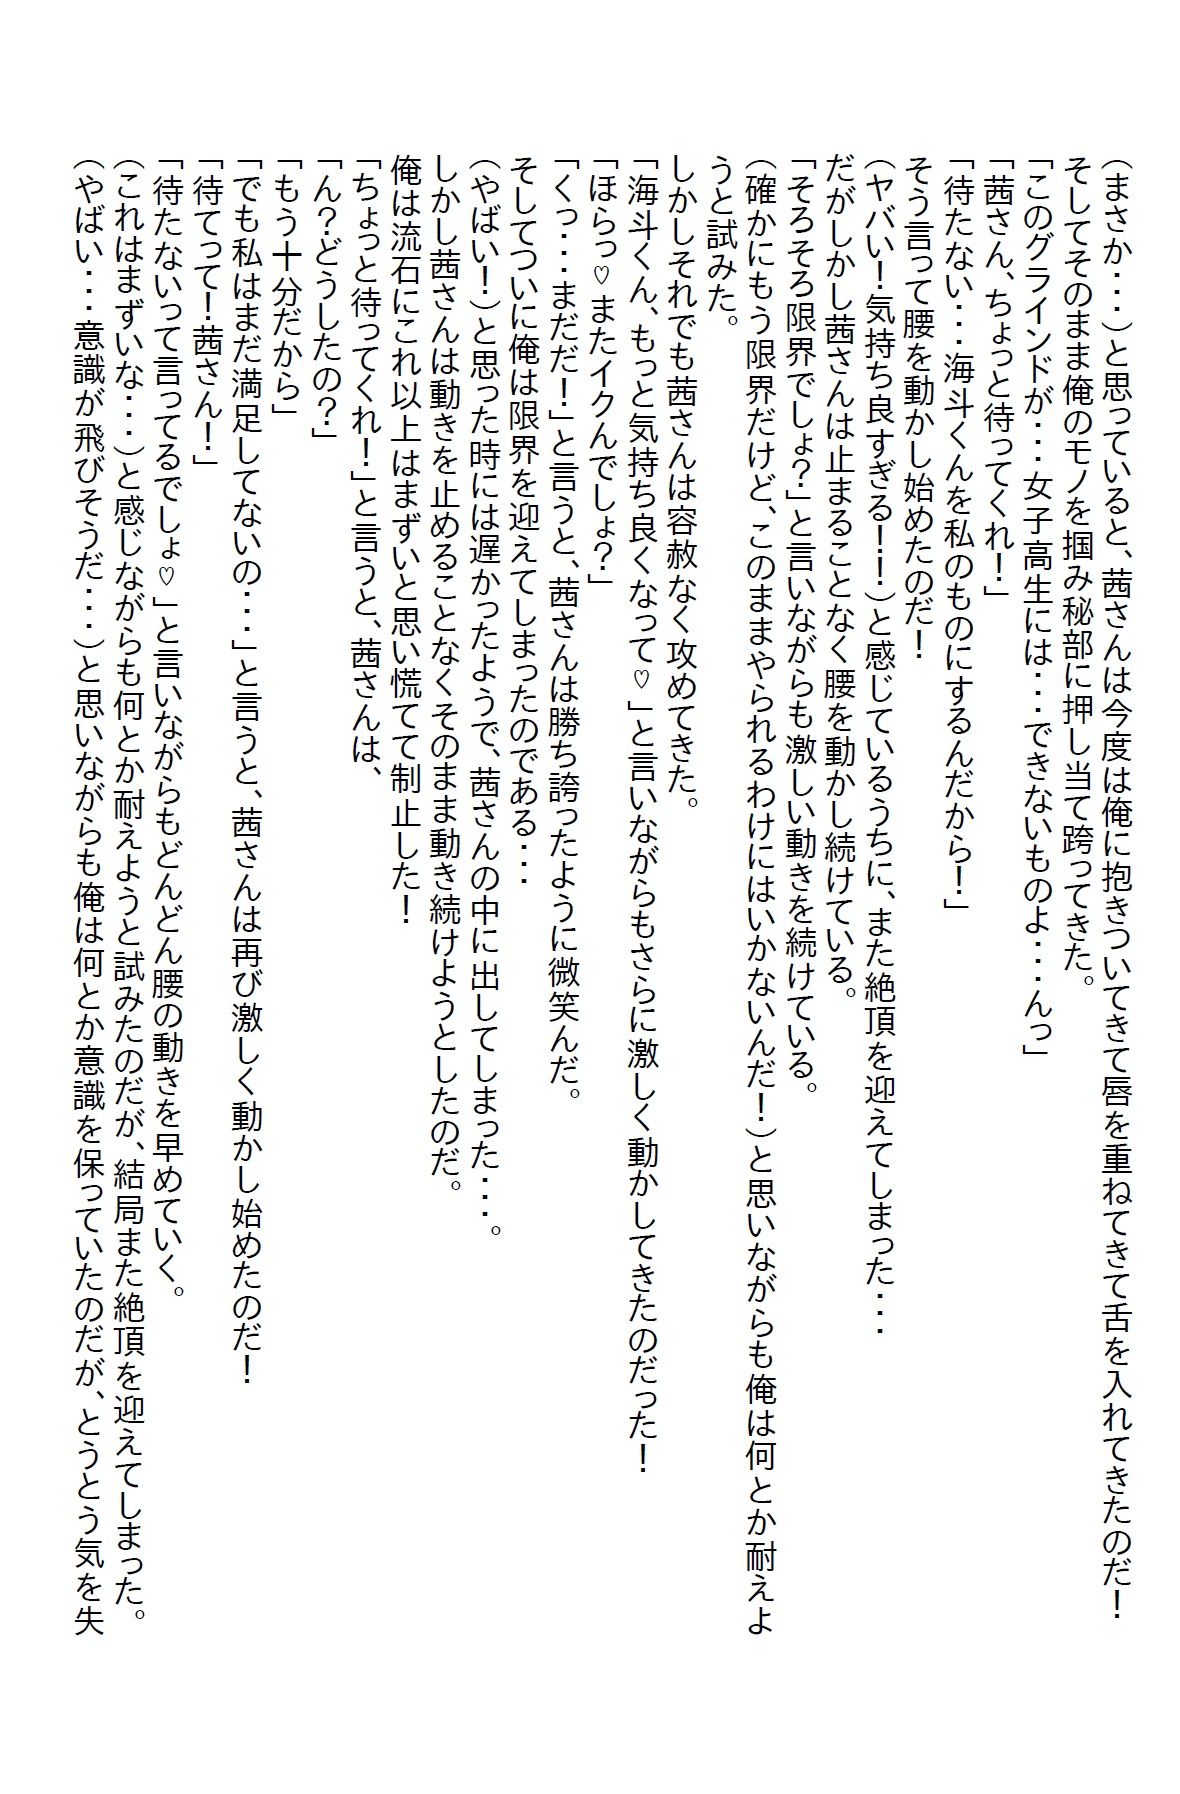 (まさか・・・)と思っていると、茜さんは今度は俺に抱きついてきて唇を重ねてきて舌を入れてきたのだ！
そしてそのまま俺のモノを掴み秘部に押し当て跨ってきた。
「このグラインドが・・・女子高生には・・・できないものよ・・・んっ」
「茜さん、ちょっと待ってくれ！」
「待たない・・・海斗くんを私のものにするんだから！」
そう言って腰を動かし始めたのだ！
(ヤバい！気持ち良すぎる！！)と感じているうちに、また絶頂を迎えてしまった・・・
だがしかし茜さんは止まることなく腰を動かし続けている。
「そろそろ限界でしょ？」と言いながらも激しい動きを続けている。
(確かにもう限界だけど、このままやられるわけにはいかないんだ！)と思いながらも俺は何とか耐えよ
うと試みた。
しかしそれでも茜さんは容赦なく攻めてきた。
「海斗くん、もっと気持ち良くなって♡」と言いながらもさらに激しく動かしてきたのだった！
「ほらっ♡またイクんでしょ？」
「くっ・・・まだだ！」と言うと、茜さんは勝ち誇ったように微笑んだ。
そしてついに俺は限界を迎えてしまったのである・・・
(やばい！)と思った時には遅かったようで、茜さんの中に出してしまった・・・。
しかし茜さんは動きを止めることなくそのまま動き続けようとしたのだ。
俺は流石にこれ以上はまずいと思い慌てて制止した！
「ちょっと待ってくれ！」と言うと、茜さんは、
「ん？どうしたの？」
「もう十分だから」
「でも私はまだ満足してないの・・・」と言うと、茜さんは再び激しく動かし始めたのだ！
「待てって！茜さん！」
「待たないって言ってるでしょ♡」と言いながらもどんどん腰の動きを早めていく。
(これはまずいな・・・)と感じながらも何とか耐えようと試みたのだが、結局また絶頂を迎えてしまった。
(やばい・・・意識が飛びそうだ・・・)と思いながらも俺は何とか意識を保っていたのだが、とうとう気を失